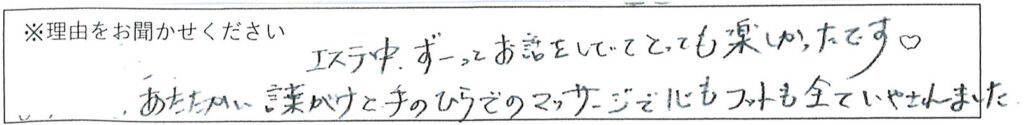 ※理由をお聞かせください
エステ中、ずーっとお話をしていてとっても楽しかったです♡
あたたかい言葉がけと手のひらでのマッサージで心もフットも全ていやされました